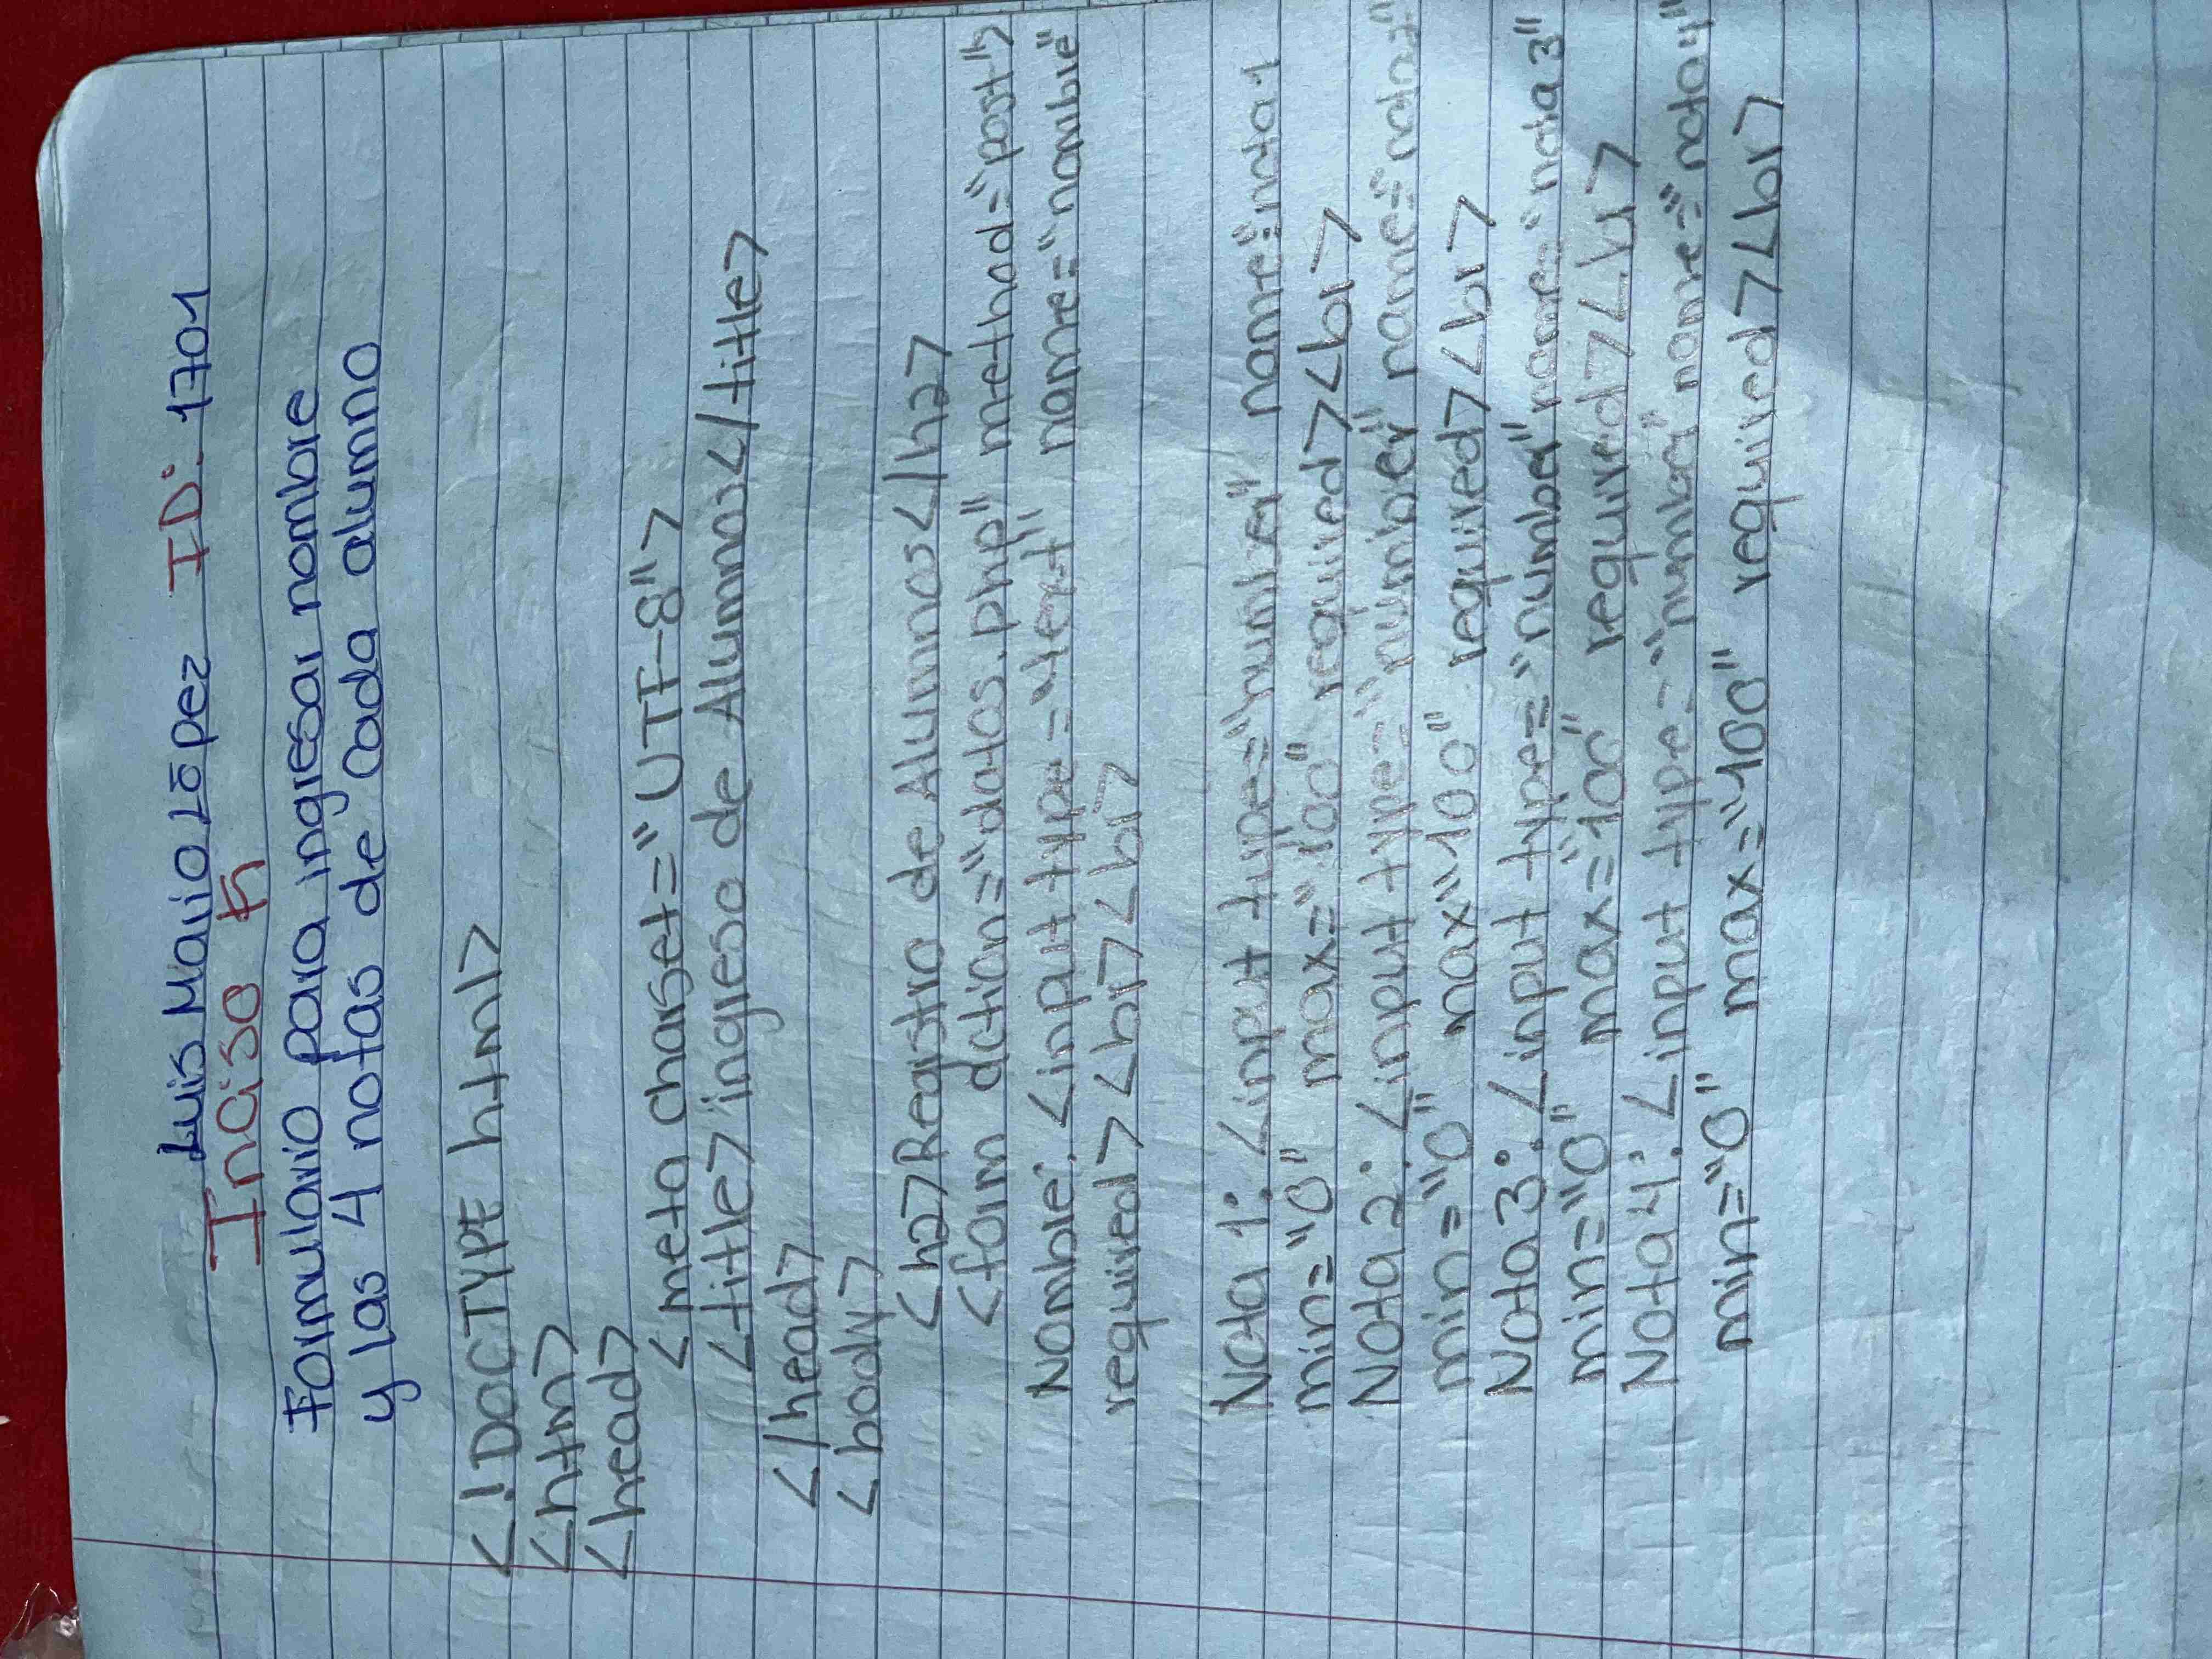 Luis Mario López ID: 1701
Inciso
Formulario para ingresar nombre
y las 4 notas de cada alumno
<!DOCTYPE html>
<htm>
<head>
<meta charset="UTF-8">
<title> ingreso de Alumnos</title>
</head>
<body>
<h2>Registro de Alumnos</h2>
<form action="datos.php" method="post">
Nombre: <input type="text" name="nombre"
required><br><br>
Nota 1: <input type="number" name="nota1
min="0" max="100" required><br>
Nota 2: <input type="number" name="nota2"
min="0" max"100" required><br>
Nota 3: <input type="number" name="nota3"
min="0" max="100" required><br>
Nota 4: <input type="number" name="nota4"
min="0" max="100" required><br>